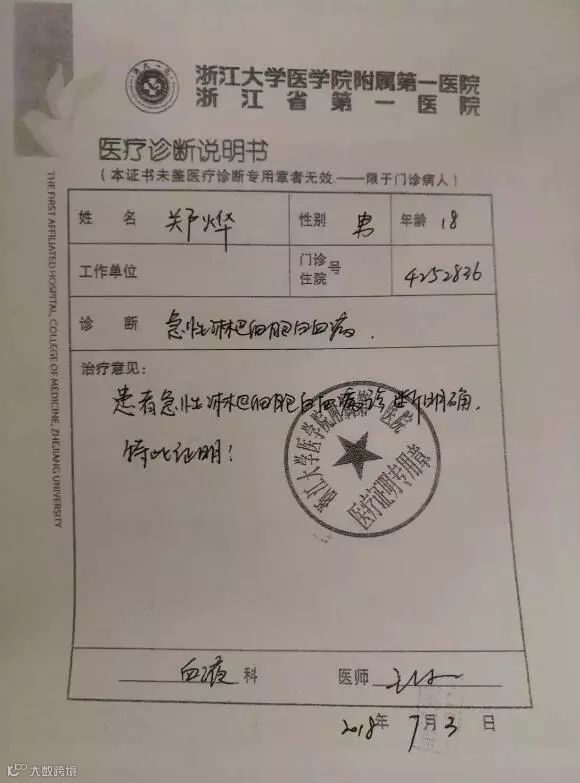 浙江大学医学院附属第一医院
浙江省第一医院
医疗诊断说明书
(本证书未盖医疗诊断专用章者无效——限于门诊病人)
姓名 郑烨 性别 男 年龄 18
工作单位 门诊住院号 4252836
诊断 急性淋巴细胞白血病.
治疗意见:
患者急性淋巴细胞白血病诊断明确.
特此证明!
浙江大学医学院附属第一医院
医疗证明专用章
血液科 医师
2018年7月3日
THE FIRST AFFILIATED HOSPITAL, COLLEGE OF MEDICINE, ZHEJIANG UNIVERSITY
大数跨境